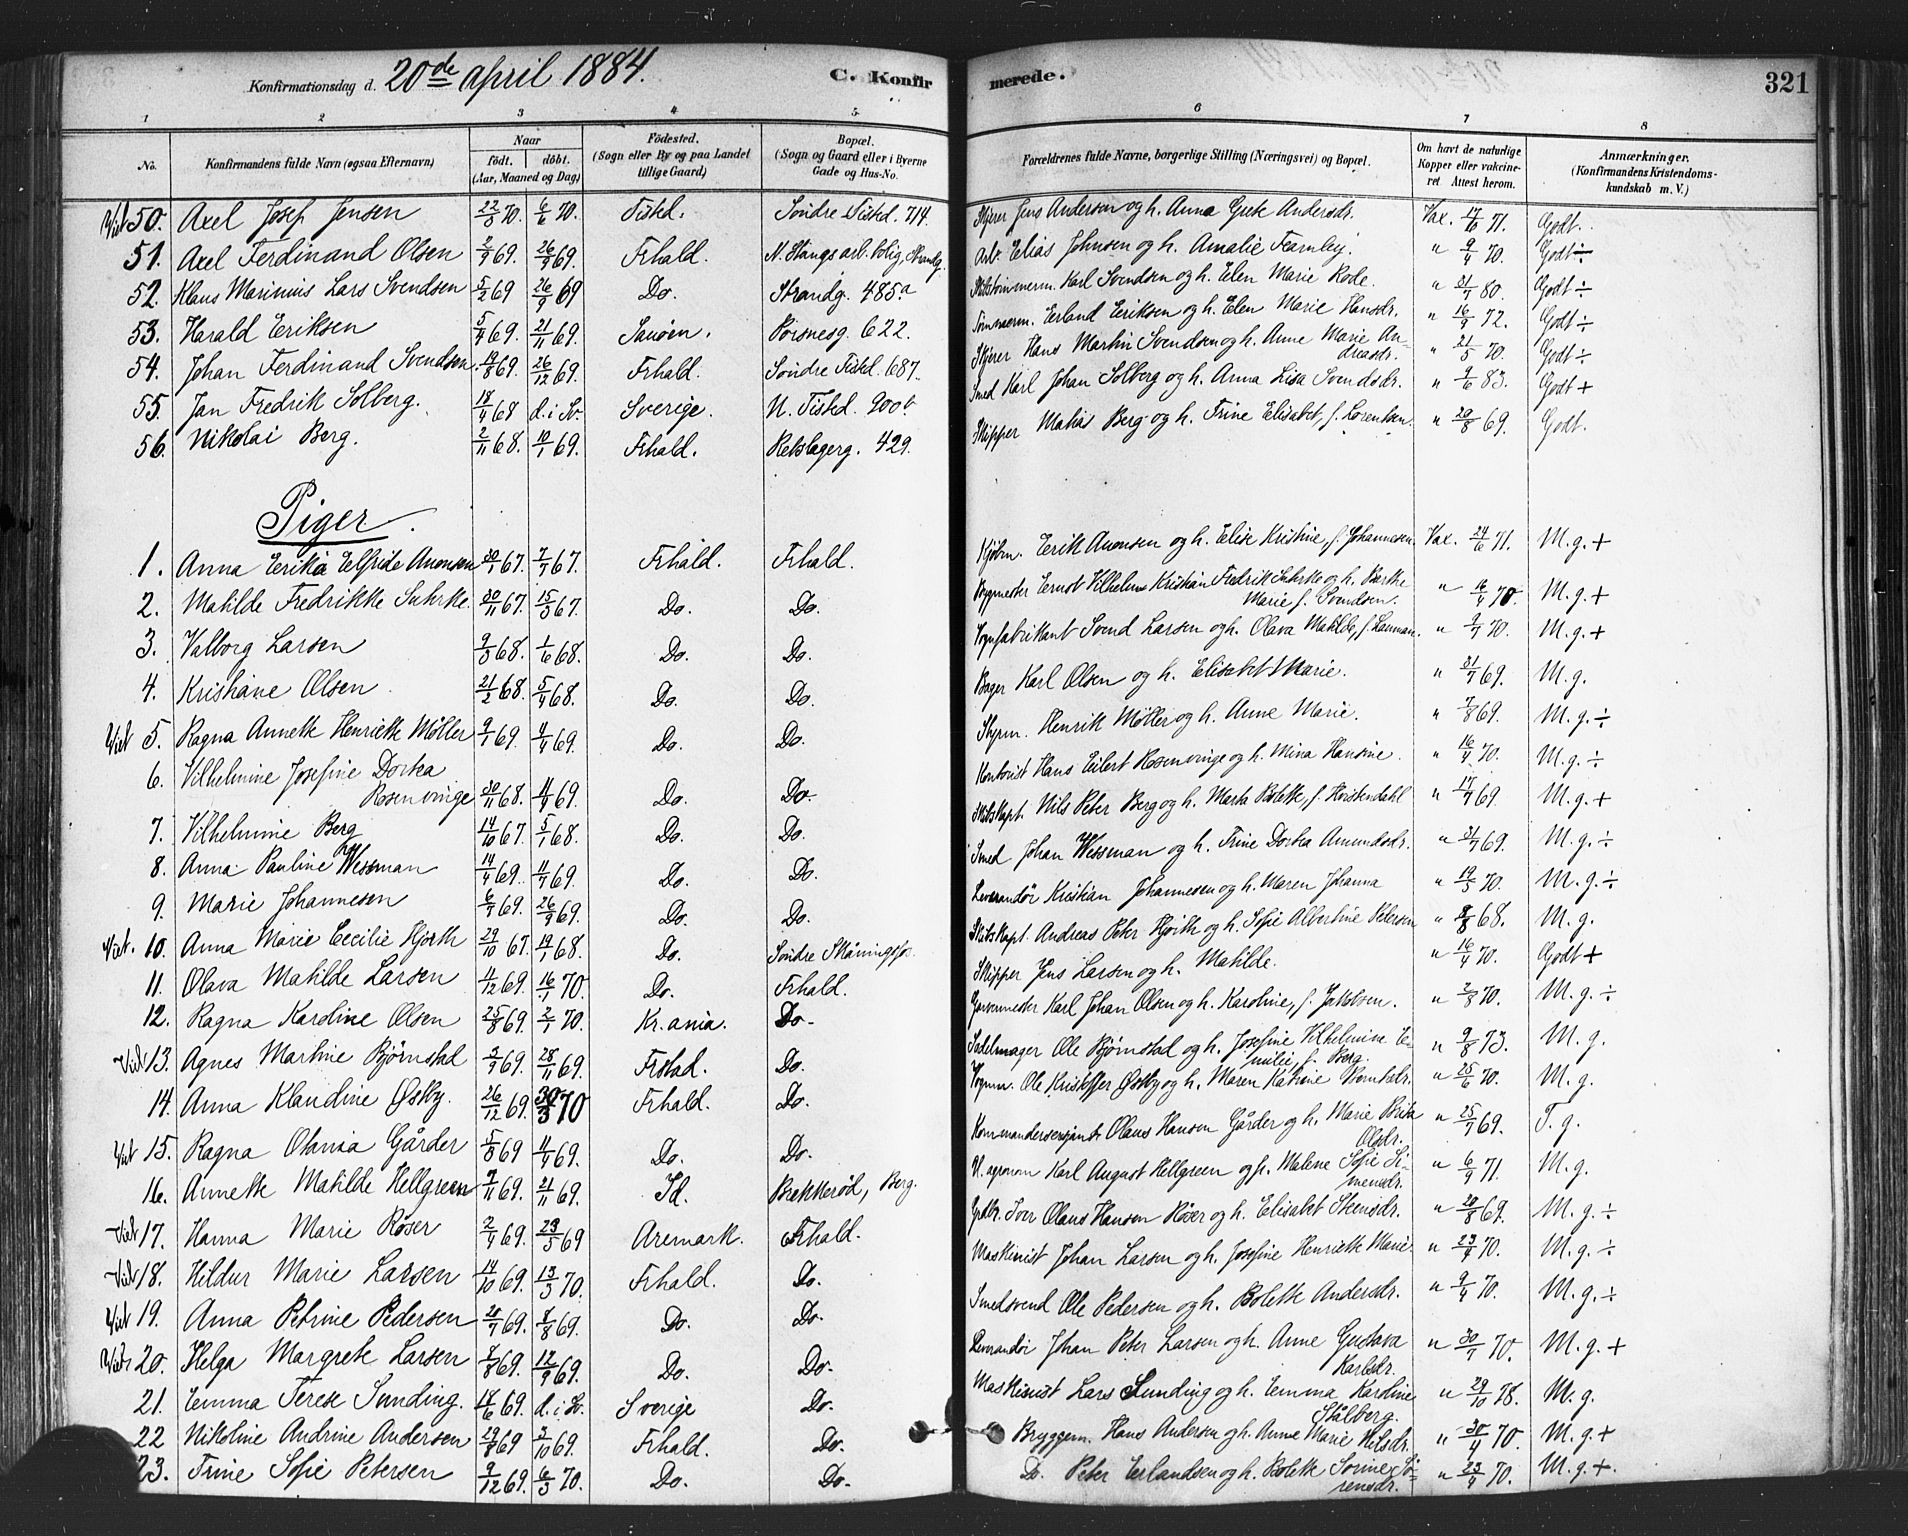 Konfirmationsdag d. 20de April 1884. C. Konfirmerede. 321
1 2 3 4 5 6 7 8
No. Konfirmandens fulde Navn (ogsaa Efternavn) Naar født. døbt. (Aar, Maaned og Dag) Fødested. (Sogn eller By og paa Landet tillige Gaard) Bopæl. (Sogn og Gaard eller i Byerne Gade og Hus-No. Forældrenes fulde Navne, borgerlige Stilling (Næringsvei) og Bopæl. Om havt de naturlige Kopper eller vakcineret Attest herom. Anmærkninger. (Konfirmandens Kristendomskundskab m. V.)
50. Axel Josef Jensen 22/3 70. 6/6 70. Tisted. Søndre Tisted. 714. Skjærer Jens Andersen og h. Anna Grete Andersdr. Vax. 17/6 71. Godt.
51. Axel Ferdinand Olsen 2/9 69. 26/9 69. Frhald. N. Stangs arb. bolig, Strandg. Arb. Elias Johnsen og h. Amalie Fearnley. " 9/4 70. Godt ÷
52. Klaus Marinius Lars Svendsen 5/2 69 26/9 69 Do. Strandg. 485a Karl Svendsen og h. Elen Marie Rode. " 31/7 80. Godt ÷
53. Harald Eriksen 5/4 69. 21/11 69. Sauøen. Porsnesg. 622. Tømmerm. Erland Eriksen og h. Elen Marie Hansdr. " 16/9 72. Godt ÷
54. Johan Ferdinand Svendsen. 19/8 69. 26/12 69. Frhald. Søndre Tisted. 687. Skjærer Hans Martin Svendsen og h. Anne Marie Andreasdr. " 21/5 70. Godt ÷
55. Jan Fredrik Solberg. 18/4 68 d. i Sv. Sverige. N. Tisted. 900b. Smed Karl Johan Solberg og h. Anna Lisa Svendsdr. " 9/6 83. Godt +
56. Nikolai Berg. 2/11 68. 10/1 69. Frhald. Rebslagerg. 429. Skipper Matias Berg og h. Trine Elisabet, f. Lorentsen. " 20/8 69. Godt.
Piger.
1. Anna Erika Elfride Anonsen 30/1 67. 7/7 67. Frhald. Frhald. Kjøbm. Erik Anonsen og h. Elise Kristine, f. Johannesen. Vax. 24/6 71. M. g. +
2. Matilde Fredrikke Suhrke 30/11 67. 15/3 67. Do. Do. Bygmester Ernst Vilhelm Kristian Fredrik Suhrke og h. Berthe Marie f. Svendsen. " 16/4 70. M. g. +
3. Valborg Larsen 9/3 68. 1/6 68. Do. Do. Vognfabrikant Svend Larsen og h. Olava Matilde, f. Lauman. " 9/7 70. M. g. +
4. Kristiane Olsen 21/2 68. 5/4 68. Do. Do. Bager Karl Olsen og h. Elisabet Marie. " 31/7 69. M. g.
5. Ragna Annette Henriette Møller 9/1 69. 4/4 69. Do. Do. Styrm. Henrik Møller og h. Anne Marie. " 7/8 69. M. g. ÷
6. Vilhelmine Josefine Dortea Rosenvinge 30/11 68. 4/4 69. Do. Do. Kontorist Hans Eilert Rosenvinge og h. Mina Hansine. " 16/4 70. M. g. ÷
7. Vilhelmine Berg 14/10 67. 5/1 68. Do. Do. Skibskapt. Nils Peter Berg og h. Marta Bolette, f. Hvistendahl " 17/7 69. M. g. +
8. Anna Pauline Wessman 14/4 69. 4/7 69. Do. Do. Smed Johan Wessman og h. Trine Dortea Amundsdr. " 31/7 69. M. g. ÷
9. Marie Johannesen 6/7 69. 26/9 69. Do. Do. Leverandør Kristian Johannesen og h. Maren Johanna " 19/5 70. M. g. ÷
10. Anna Marie Cecilie Hjorth 29/10 67. 19/1 68. Do. Skibskapt. Andreas Peter Hjorth og h. Sofie Albertine Petersen " 8/8 68. M. g.
11. Olava Matilde Larsen 4/12 69. 16/1 70. Do. Frhald. Skipper Jens Larsen og h. Matilde. " 16/4 70. Godt +
12. Ragna Karoline Olsen 25/8 69. 2/1 70. Kr.ania. Do. Garvermester Karl Johan Olsen og h. Karoline, f. Jakobsen. " 2/8 70. M. g. ÷
13. Agnes Martine Bjørnstad 3/9 69. 28/11 69. Frstad. Do. Sadelmager Ole Bjørnstad og h. Josefine Vilhelmina Emilie, f. Berg. " 9/8 73. M. g.
14. Anna Klaudine Østby. 26/12 69. 30/3 70 Frhald. Do. Vognm. Ole Kristoffer Østby og h. Maren Katrine Berntsdr. " 25/6 70. M. g.
15. Ragna Olania Gårder 5/3 69 4/4 69. Do. Do. Kommandersersjant Olaus Hansen Gårder og h. Marie Brita Olsdr. " 25/7 69. T. g.
16. Annette Matilde Hellgreen 7/11 69. 21/11 69. Id. Bækkerød, Berg. Karl August Hellgreen og h. Malene Sofie Simensdr. " 6/9 71. M. g.
17. Hanna Marie Røser 2/4 69. 23/5 69 Aremark. Frhald. Iver Olaus Hansen Røser og h. Elisabet Steensdr. " 28/8 69. M. g. ÷
18. Hildur Marie Larsen 14/10 69. 13/3 70. Frhald. Do. Maskinist Johan Larsen og h. Josefine Henriette Marie. " 23/4 70. M. g. ÷
19. Anna Petrine Pedersen 20/7 69. 8/8 69. Do. Do. Smedsvend Ole Pedersen og h. Bolette Andersdr. " 9/4 70. M. g. ÷
20. Helga Margrete Larsen 8/8 69. 12/9 69. Do. Do. Leverandør Johan Peter Larsen og h. Anne Gustava Karlsdr. " 30/7 70. M. g. +
21. Emma Terese Sunding. 18/6 69. d. i Sv. Sverige Do. Maskinist Lars Sunding og h. Emma Karoline Stålberg. " 29/10 78. M. g.
22 Nikoline Andrine Andersen 29/8 69 3/10 69. Frhald. Do. Bryggem. Hans Andersen og h. Anne Marie Nilsdr. " 30/4 70. M. g. +
23. Trine Sofie Petersen 9/12 69. 6/3 70. Do. Do. Do. Peter Erlandsen og h. Bolette Sørine Sørensdr. " 23/4 70. M. g. +.